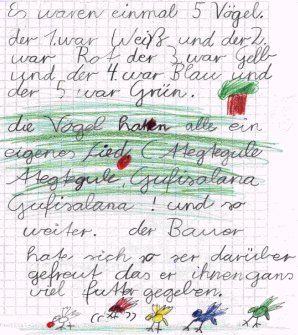 Es waren einmal 5 Vögel.
der 1. war Weiß und der 2.
war Rot der 3 war Gelb
und der 4. war Blau und
der 5 war Grün.
die Vögel haten alle ein
eigenes Lied (Megtegule
Megtegule, Gufisalana
Gufisalana ! und so
weiter. der Bauer
hate sich so ser darüber
gefreut das er ihnen gans
viel futter gegeben.